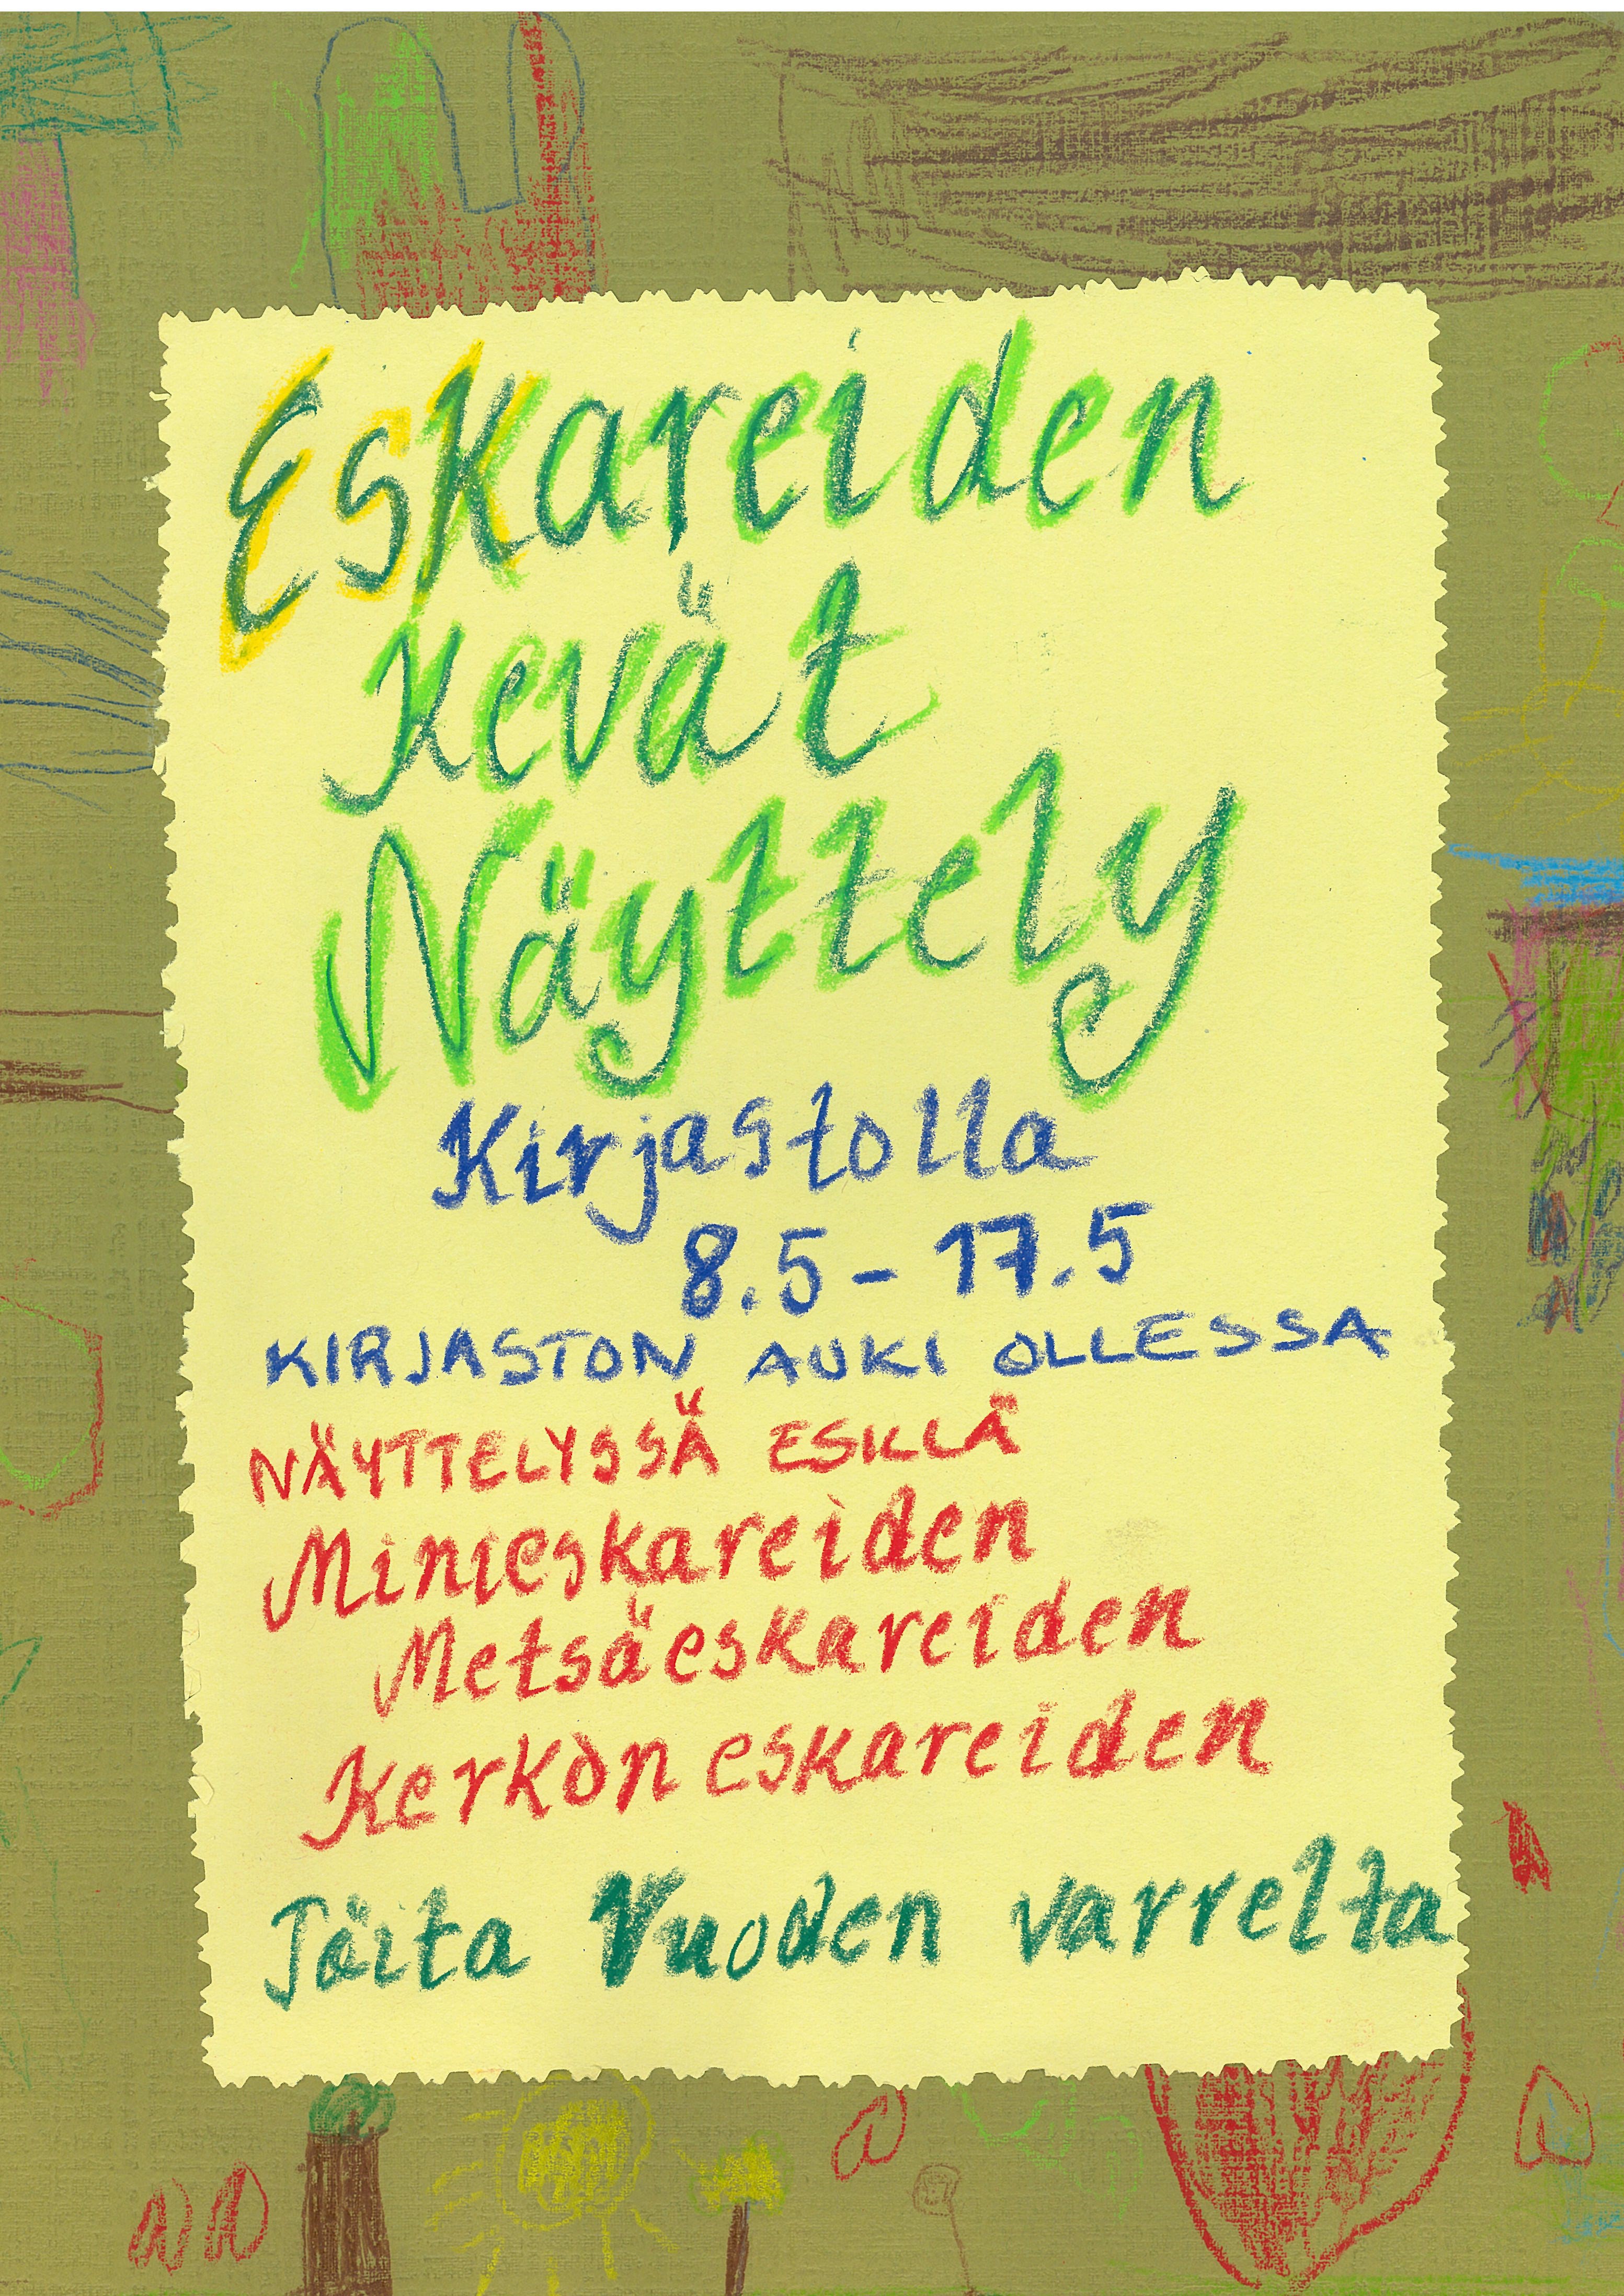 Eskareiden
Kevät
Näyttely
Kirjastolla
8.5 - 17.5
KIRJASTON AUKI OLLESSA
NÄYTTELYSSÄ ESILLÄ
Minieskareiden
Metsäeskareiden
Kerkön eskareiden
Töitä Vuoden varrelta